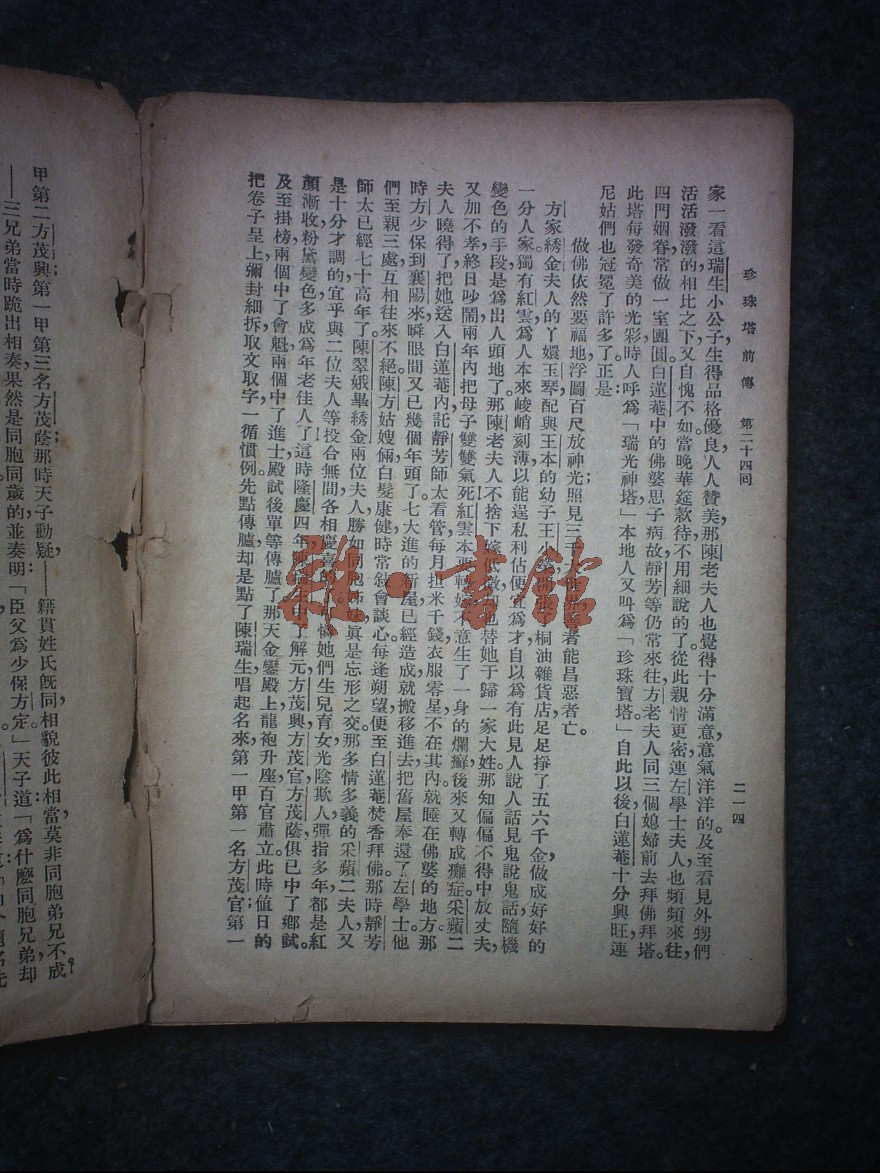 珍珠塔前傳　第二十四回　二一四
家一看這瑞生小公子生得品格優良，人人贊美，那陳老夫人也覺得十分滿意，意氣洋洋的。及至看見外甥們
活活潑潑的，相比之下，又自愧不如。當晚華筵款待，不用細說的了。從此親情更密，連左學士夫人也頻頻來往，
四門姻眷，常做一室團圓。白蓮菴中的佛婆思子病故，靜芳等仍常來往，方老夫人同三個媳婦前去拜佛拜塔。
此塔每發奇美的光彩，時人呼爲「瑞光神塔」，本地人又叫爲「珍珠寶塔」。自此以後，白蓮菴十分興旺，連
尼姑們也冠冕了許多了。正是：
做佛依然要福地，浮圖百尺放神光；照見三千 者能昌惡者亡。
方家綉金夫人的丫嬛玉琴，配與王本的幼子王小 桐油雜貨店，足足掙了五六千金，做成好好的
一分人家。獨有紅雲爲人本來峻峭刻薄，以能逞私利佔便宜爲才，自以爲有此見人說人話，見鬼說鬼話，隨機
變色的手段，是爲出人頭地了。那陳老夫人不捨下嫁低微， 也替她于歸一家大姓。那知偏偏不得中放丈夫，
又加不孝，終日吵鬧，兩年內把母子雙雙氣死。紅雲本 再轉嫁，不意生了一身的爛癬，後來又轉成癱症。采蘋二
夫人曉得了，把她送入白蓮菴內，託靜芳師太看管，每月担米千錢，衣服零星不在其內，就睡在佛婆的地方。那
時方少保到襄陽來，瞬眼間又已幾個年頭了。七大進的新屋已經造成，就搬移進去，把舊屋奉還了左學士。他
們至親三處，互相往來不絕。陳方姑嫂倆白髮康健，時常敍會談心，每逢朔望，便至白蓮菴焚香拜佛。那時靜芳
師太已經七十高年了。陳翠娥畢綉金兩位夫人，勝如同胞姊妹，眞是忘形之交。那多情多義的采蘋二夫人，又
是十分才調的，宜乎與二位夫人等投合無間，各相慶喜的。 她們生兒育女，光陰欺人，彈指多年，都是紅
顏漸收，粉黛變色，多成爲年老佳人了。這時隆慶四年， 中了解元，方茂興方茂官方茂蔭俱已中了鄉試。
及至掛榜，兩個中了會魁，兩個中了進士，殿試後單等傳臚了。那天金鑾殿上龍袍升座，百官肅立。此時值日的
把卷子呈上，彌封細拆，取文取字，一循慣例。先點傳臚，却是點了陳瑞生，唱起名來，第一甲第一名方茂官，第一
甲第二方茂興；第一甲第三名方茂蔭。那時天子動疑——籍貫姓氏旣同，相貌彼此相當，莫非同胞弟兄不成？
——三兄弟當時跪出相奏，果然是同胞同歲的，並奏明：「臣父爲少保方定。」天子道：「爲什麽同胞兄弟却
雅·書館